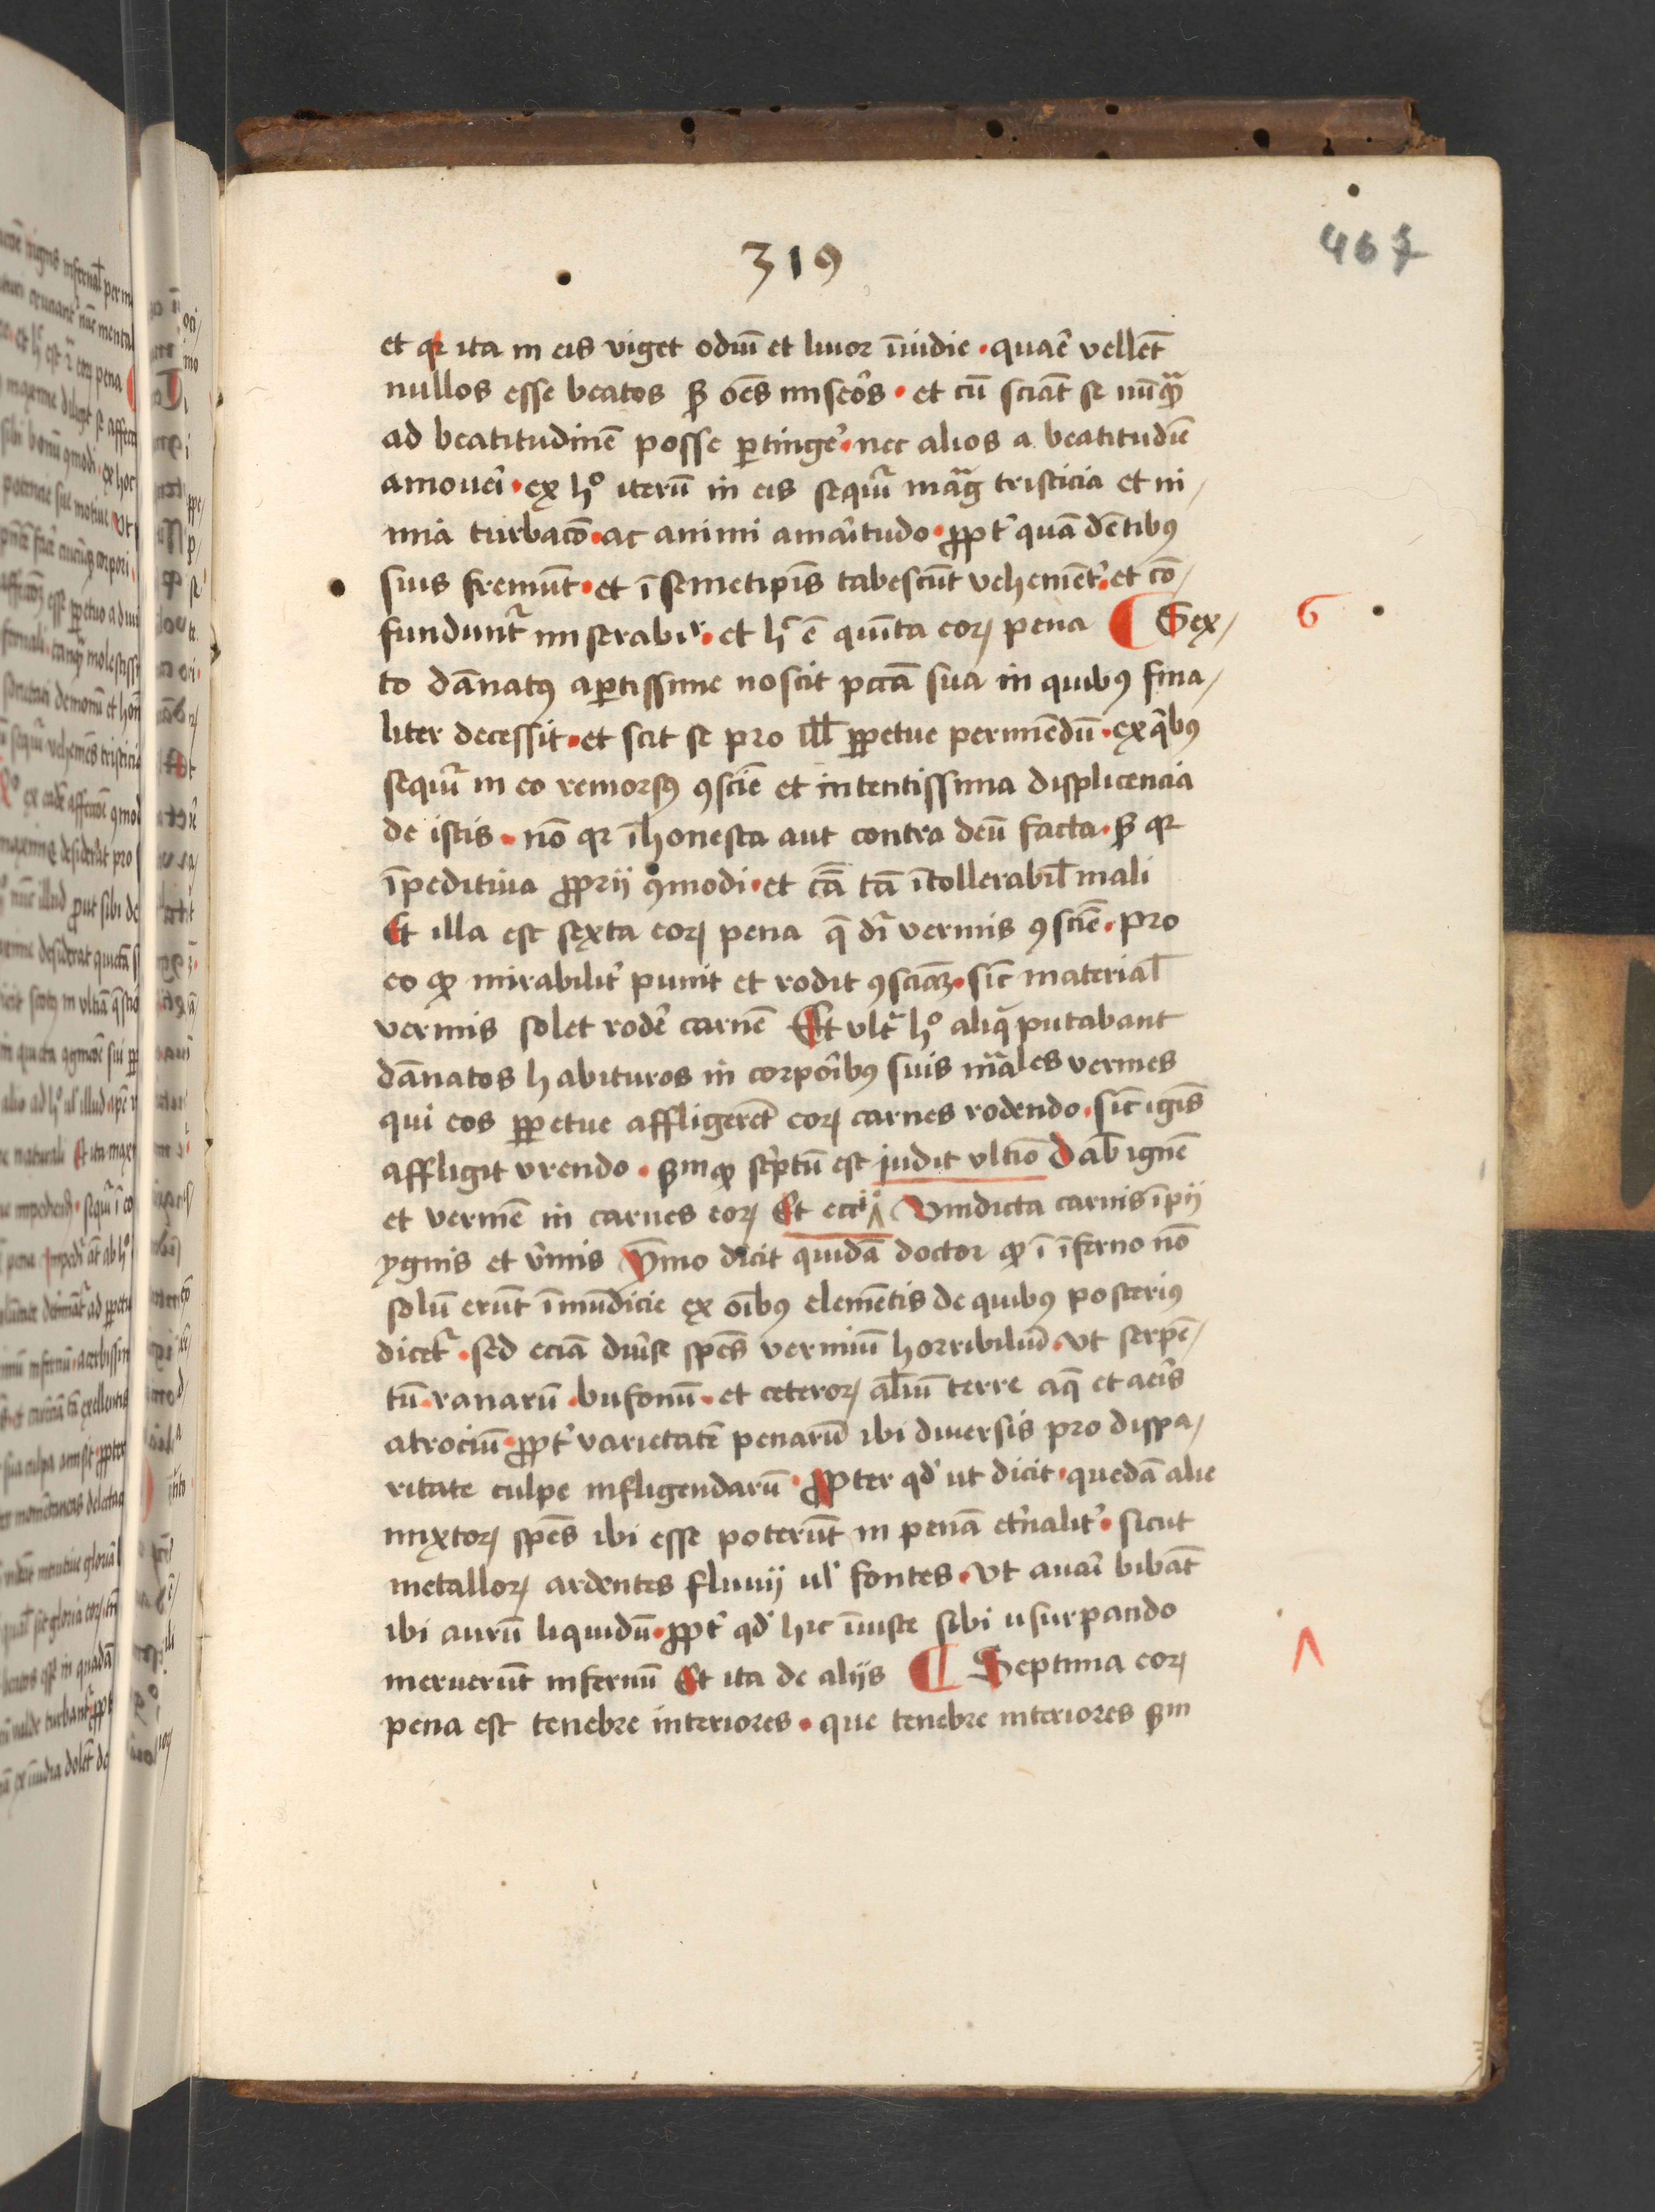 467
319
et qꝛ ita in eis viget odiū et liuor īuidie · quaꝛē vellēt
nullos esse beatos sꝫ oēs miseōs · et cū sciāt se nūqᷓ
ad beatitudinē posse ꝑtinge᷑ · nec alios a beatitudīe
amoue᷑i · ex hͦ iterū in eis sequit᷑ magͣ tristicia et ni⸗
mia turbacō · ac animi ama᷑itudo · ꝓpt᷑ quā dētibꝰ
suis fremūt · et ī semetip̄is tabescūt vehemēt᷑ · et cō⸗
fundunt᷑ miserabiꝉr · et hͨ ē quīta eoꝝ pena ¶ Sex⸗
6
to dānatꝰ aꝑtissime noscit pctā sua in quibꝰ fina⸗
liter decessit · et scit se pro illꝭ ꝑpetue permēdū · ex qͥbꝰ
sequit᷑ in eo remorsꝰ ꝯsciē et intentissima displicencia
de istis · nō qꝛ īhonesta aut contra deū facta · sꝫ qꝛ
īpeditiua ꝓprij ꝯmodi · et cā tā ītollerabilꝭ mali
Et illa est sexta eoꝝ pena q̄ dr̄ vermis ꝯsciē · pro
eo ꝙ mirabilit᷑ punit et rodit ꝯsciāꝫ · sic̄ materialꝭ
vermis solet rode᷑ carnē Et vlt᷑ hͦ aliqͥ putabant
dānatos habituros in corpo᷑ibꝰ suis mᷓales vermes
qui eos ꝑpetue affligerēt eoꝝ carnes rodendo · sic̄ ignis
affligit vrendo · sm ꝙ sc᷑ptū est judit vltīo Dabꝭ ignē
et vermē in carnes eoꝝ Et ecciͣͦ Vindicta carnis īpij
ygnis et v᷑mis Ymmo dicit quidā doctor ꝙ ī īferno nō
solū erūt īmūdicie ex oībꝰ elemētis de quibꝰ posteriꝰ
dicet᷑ · sed eciā diu᷑se sp̄es vermiū horribiliū · vt serpē⸗
tū · ranarū · bufonū · et ceteroꝝ al̄iū terre aq̄ et ae᷑is
atrociū · ꝓpt᷑ varietatē penarū ibi diuersis pro dispa⸗
ritate culpe infligendarū · Propter qd᷑ ut dicit · quedā alie
mixtoꝝ sp̄es ibi esse poterūt in penā et᷑nalit᷑ · sicut
metalloꝝ ardentes fluuij ul᷑ fontes · vt aua᷑i bibāt
ibi aurū liquidū · ꝓpt᷑ qd᷑ hic īiuste sibi usurpando
meruerūt infernū Et ita de alijs ¶ Septima eoꝝ
Λ
pena est tenebre interiores · que tenebre interiores sm